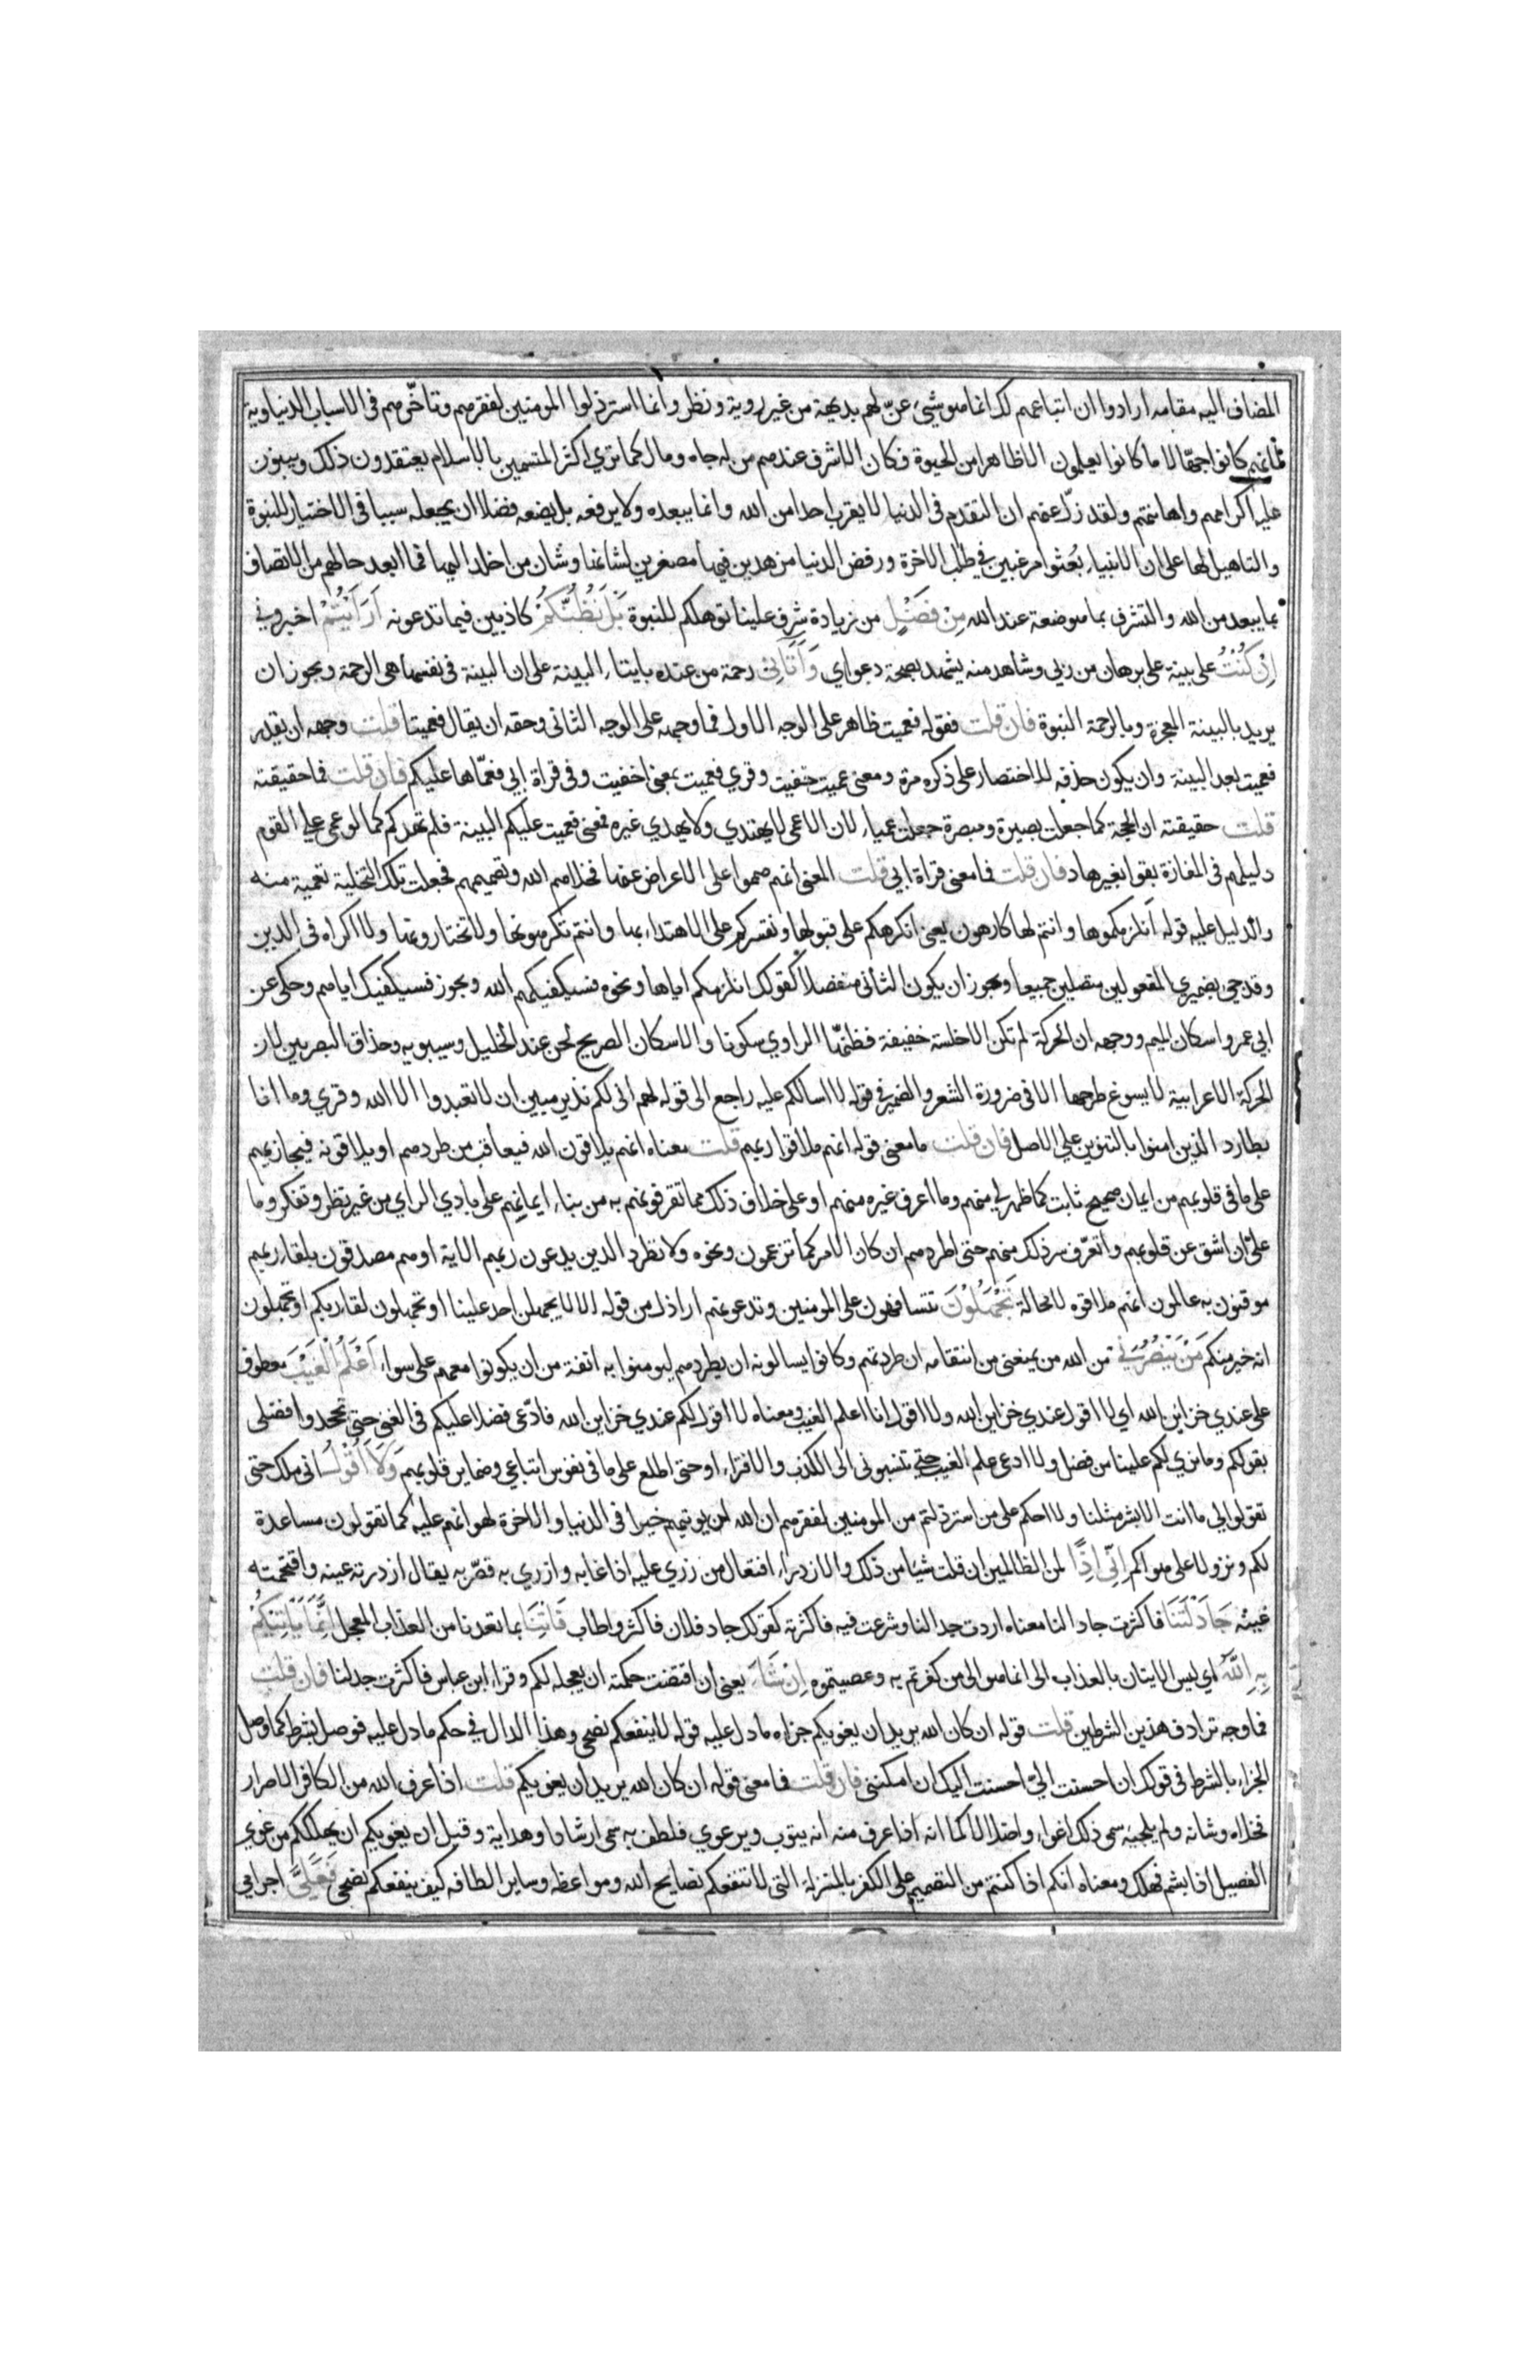 المضاف اليه مقامه ارادوا ان اتباعهم لك انما هو شيء عنّ لهم بديهة من غير روية ونظر وانما استرذلوا المومنين لفقرهم وتاخّرهم في الاسباب الدنياوية
لانهم كانوا جهّالا ما كانوا يعلمون الا ظاهرا من الحيوة فكان الاشرف عندهم من له جاه ومال كما تري اكثر المتسمين بالاسلام يعتقدون ذلك ويبنون
عليه اكرامهم واهانتهم ولقد زلّ عنهم ان التقدم في الدنيا لا يقرب احدا من الله وانما يبعده ولا يرفعه بل يضعه فضلا ان يجعله سببا في الاختيار للنبوة
والتاهيل لها علي ان الانبياء بُعثوا مرغبين في طلب الاخرة ورفض الدنيا مزهدين فيها مصغرين لشانها وشان من اخلد اليها فما ابعد حالهم من الاتصاف
بما يبعد من الله والتشرف بما هو ضعة عند الله مِنْ فَضْلٍ من زيادة شرف علينا توهلكم للنبوة بَلْ نَظُنُّكُمْ كاذبين فيما تدعونه أَرَأَيْتُمْ اخبروني
إِنْ كُنْتُ علي بينة علي برهان من ربي وشاهد منه يشهد بصحة دعواي وَآتَانِي رحمة من عنده بايتاء البينة علي ان البينة في نفسها هي الرحمة ويجوز ان
يريد بالبينة المعجزة وبالرحمة النبوة فان قلت فقوله فعميت ظاهر علي الوجه الاول فما وجهه علي الوجه الثاني وحقه ان يقال فعميتا قلت وجهه ان يقدر
فعميت بعد البينة وان يكون حذفه للاختصار علي ذكره مرة ومعني عميت خفيت وقري فعميت بمعني اخفيت وفي قراة ابي فعمّاها عليكم فان قلت فما حقيقته
قلت حقيقته ان الحجة كما جعلت بصيرة ومبصرة جعلت عمياء لان الاعمي لا يهتدي ولا يهدي غيره فمعني فعميت عليكم البينة فلم تهدكم كما لو عمي علي القوم
دليلهم في المفازة بقوا بغير هاد فان قلت فما معني قراة ابي قلت المعني انهم صمموا علي الاعراض عنها فخلاهم الله وتصميمهم فجعلت تلك التخلية تعمية منه
والدليل عليه قوله انلزمكموها وانتم لها كارهون يعني انكرهكم علي قبولها ونقسركم علي الاهتداء بها وانتم تكرهونها ولا تختارونها ولا اكراه في الدين
وقد جي بضميري المفعولين متصلين جميعا ويجوز ان يكون الثاني منفصلا كقولك انلزمكم اياها ونحوه فسيكفيكهم الله ويجوز فسيكفيك اياهم وحكي عن
ابي عمرو اسكان الميم ووجهه ان الحركة لم تكن الا خلسة خفيفة فظنّها الراوي سكونا والاسكان الصريح لحن عند الخليل وسيبويه وحذاق البصريين لان
الحركة الاعرابية لا يسوغ طرحها الا في ضرورة الشعر والضمير في قوله لا اسالكم عليه راجع الي قوله لهم اني لكم نذير مبين ان لا تعبدوا الا الله وقري وما انا
بطارد الذين امنوا بالتنوين علي الاصل فان قلت ما معني قوله انهم ملاقوا ربهم قلت معناه انهم يلاقون الله فيعاقب من طردهم او يلاقونه فيجازيهم
علي ما في قلوبهم من ايمان صحيح ثابت كما ظهر لي منهم وما اعرف غيره منهم او علي خلاف ذلك مما تقرفونهم به من بناء ايمانهم علي بادي الراي من غير نظر وتفكر وما
عليّ ان اشق عن قلوبهم واتعرّف سر ذلك منهم حتي اطردهم ان كان الامر كما تزعمون ونحوه ولا تطرد الذين يدعون ربهم الاية او هم مصدقون بلقاء ربهم
موقنون به عالمون انهم ملاقوه لا محالة تَجْهَلُونَ تتسافهون علي المومنين وتدعونهم اراذل من قوله الا لا يجهلن احد علينا او تجهلون لقاء ربكم او تجهلون
انه خير منكم مَنْ يَنْصُرُنِي من الله من يمنعني من انتقامه ان طردتهم وكانوا يسالونه ان يطردهم ليومنوا به انفة من ان يكونوا معهم علي سواء أَعْلَمُ الْغَيْبَ معطوف
علي عندي خزاين الله اي لا اقول عندي خزاين الله ولا اقول انا اعلم الغيب ومعناه لا اقول لكم عندي خزاين الله فادّعي فضلا عليكم في الغني حتي تجحدوا فضلي
بقولكم وما نري لكم علينا من فضل ولا ادعي علم الغيب حتي تنسبوني الي الكذب والافتراء او حتي اطلع علي ما في نفوس اتباعي وضماير قلوبهم وَلَا أَقُولُ اني ملك حتي
تقولوا لي ما انت الا بشر مثلنا ولا احكم علي من استرذلتم من المومنين لفقرهم ان الله لن يوتيهم خيرا في الدنيا والاخرة لهوانهم عليه كما تقولون مساعدة
لكم ونزولا علي هواكم إِنِّي إِذًا لمن الظالمين ان قلت شيئا من ذلك والازدراء افتعال من زري عليه اذا عابه وازري به قصّر به يقال ازدرته عينه واقتحمته
عينه جَادَلْتَنَا فاكثرت جدالنا معناه اردت جدالنا وشرعت فيه فاكثرته كقولك جاد فلان فاكثر واطاب فَأْتِنَا بما تعدنا من العذاب المعجل إِنَّمَا يَأْتِيكُمْ
بِهِ اللَّهُ اي ليس الايتان بالعذاب الي انما هو الي من كفرتم به وعصيتموه إِنْ شَاءَ يعني ان اقتضت حكمته ان يعجله لكم وقراء ابن عباس فاكثرت جدلنا فان قلت
فما وجه ترادف هذين الشرطين قلت قوله ان كان الله يريد ان يغويكم جزاه ما دل عليه قوله لا ينفعكم نصحي وهذا الدال في حكم ما دل عليه فوصل بشرط كما وصل
الجزاء بالشرط في قولك ان احسنت اليّ احسنت اليك ان امكنني فان قلت فما معني قوله ان كان الله يريد ان يغويكم قلت اذا عرف الله من الكافر الاصرار
فخلاه وشانه ولم يلجيه سمي ذلك اغواء واضلالا كما انه اذا عرف منه انه يتوب ويرعوي فلطف به سمي ارشادا وهداية وقيل ان يغويكم ان يهلككم من غوي
الفصيل اذا بشم فهلك ومعناه انكم اذا كنتم من التصميم علي الكفر بالمنزلة التي لا تنفعكم نصايح الله ومواعظه وساير الطافه كيف ينفعكم نصحي فَعَلَيَّ اجرامي